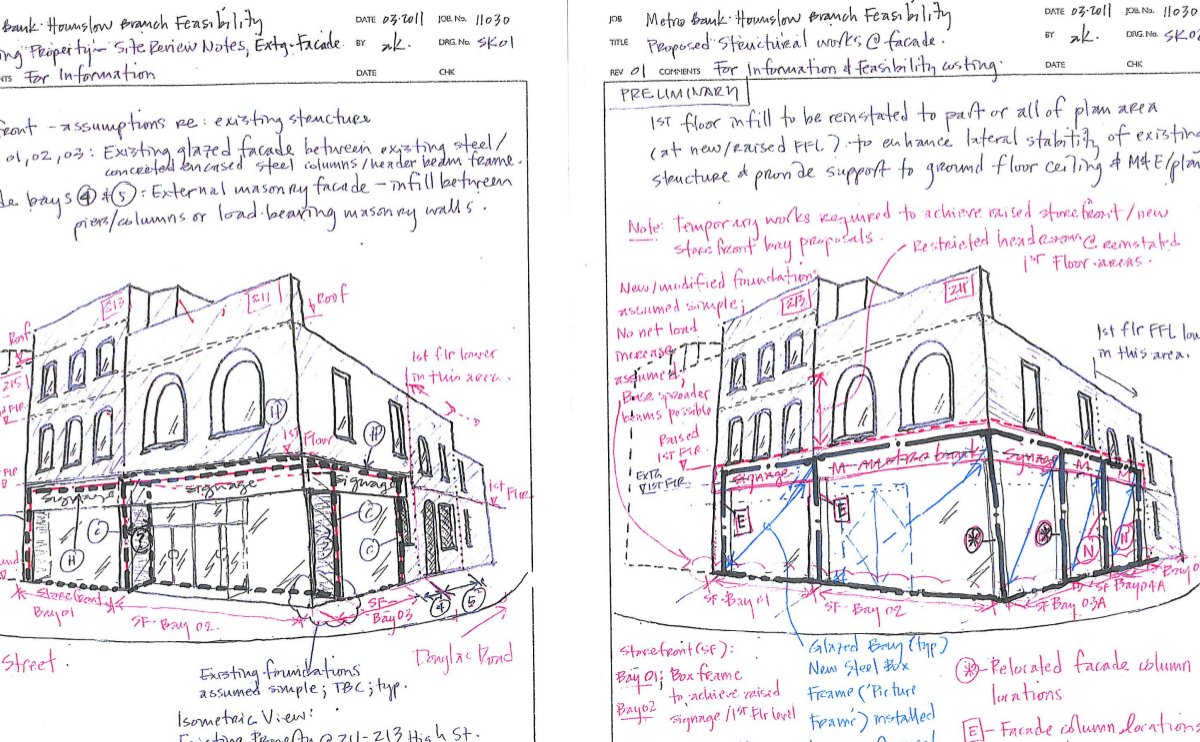 Bank · Hounslow Branch Feasibility
DATE 03·2011 JOB. No. 11030
ing Property – Site Review Notes, Extg. Facade
BY ak. DRG. No. SK01
NTS For Information
DATE CHK
front – assumptions re: existing structure
01, 02, 03: Existing glazed facade between existing steel/
concrete encased steel columns/header beam frame.
de bays 4 & 5: External masonry facade – infill between
piers/columns or load-bearing masonry walls.
213
211
Roof
Roof
215
1st flr lower
in this area.
H
H
1st Floor
1st Flr
Signage
Signage
Signage
C
C
C
H
?
Storefront
Bay 01
SF-Bay 02
SF-
Bay 03
4
5
Street.
Douglas Road
Existing foundations
assumed simple; TBC; typ.
Isometric View:
Existing Property @ 211-213 High St.
JOB Metro Bank · Hounslow Branch Feasibility
DATE 03·2011 JOB. No. 11030
TITLE Proposed Structural works @ facade.
BY ak. DRG. No. SK02
REV 01 COMMENTS For Information & Feasibility costing.
DATE CHK
PRELIMINARY
1st floor infill to be reinstated to part or all of plan area
(at new/raised FFL) to enhance lateral stability of existing
structure & provide support to ground floor ceiling & M&E/plan
Note: Temporary works required to achieve raised storefront/new
store front bay proposals.
Restricted headroom @ reinstated
1st Floor areas.
New/modified foundations
assumed simple;
No net load
increase
assumed;
Base spreader
beams possible
213
211
1st flr FFL low
in this area.
Raised
1st Flr
Extg.
1st Flr
Signage
M
metro bank
Signage
M
E
E
N
N
SF-Bay 01
SF-Bay 02
SF Bay 03A
SF Bay 04A
Bay 0
Storefront (SF):
Bay 01; Box frame
Bay 02 to achieve raised
signage/1st Flr level
Glazed Bay (typ)
New Steel Box
Frame ('Picture
Frame') installed
* - Relocated facade column
locations
E - Facade column locations